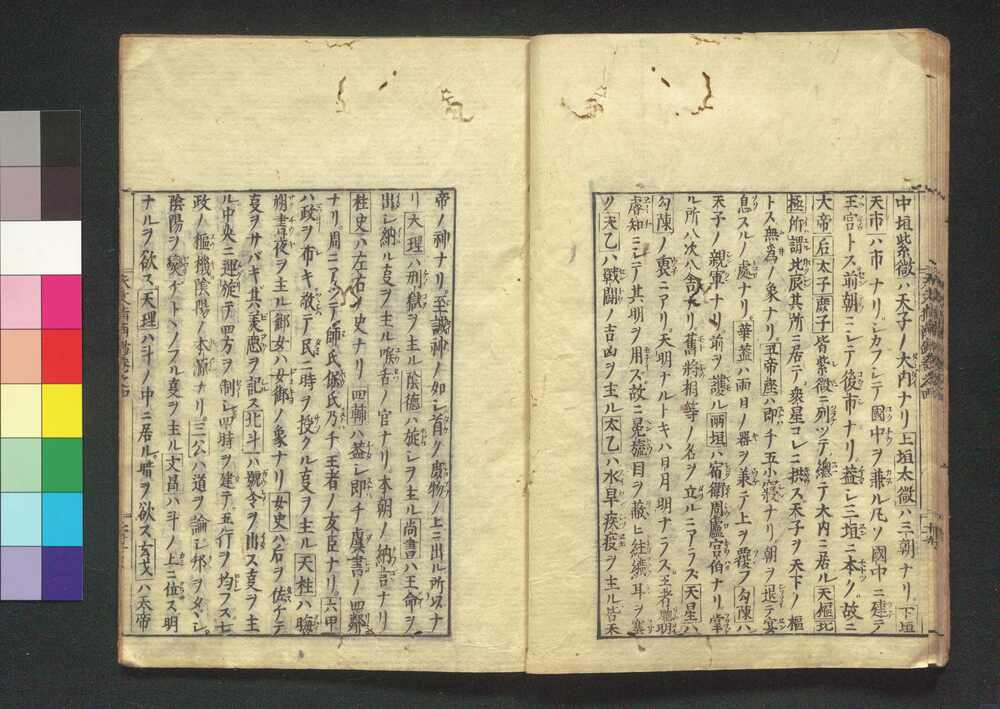 中垣紫微ハ天子ノ大内ナリ上垣太微ハ三朝ナリ下垣
天市ハ市ナリシカフシテ國中ヲ兼ル凡ソ國中ニ建テ
王宮トス前朝ニシテ後市ナリ蓋シ三垣ニ本ク故ニ
大帝后太子庶子皆紫微ニ列ツテ總テ大内ニ居ル天樞北
極所謂北辰其所ニ居テ衆星コレニ拱ス天子ヲ天下ノ樞
トス無為ノ象ナリ五帝座ハ即チ五小寢ナリ朝ヲ退テ宴
息スルノ處ナリ華蓋ハ雨日ノ器ヲ兼テ上ヲ覆フ勾陳ハ
天子ノ親軍ナリ前ヲ護ル兩垣ハ宿衛周廬宮伯ナリ掌
ル所八次八舍ナリ舊將相等ノ名ヲ立ルニアラズ天星ハ
勾陳ノ裏ニアリ天明ナルトキハ日月明ナラス王者聰明
睿知ニシテ其明ヲ用ズ故ニ冕旒目ヲ蔽ヒ絓纊耳ヲ塞
ク天乙ハ戰鬪ノ吉凶ヲ主ル太乙ハ水旱疾疫ヲ主ル皆天
帝ノ神ナリ至誠神ノ如シ首ク庶物ノ上ニ出ル所以ナ
リ大理ハ刑獄ヲ主ル陰德ハ施シヲ主ル尚書ハ王命ヲ
出シ納ル叓ヲ主ル喉舌ノ官ナリ本朝ノ納言ナリ
柱史ハ左右ノ史ナリ四輔ハ蓋シ即チ虞書ノ四鄰
ナリ周ニアツテ師氏保氏乃チ王者ノ友臣ナリ六甲
ハ政ヲ布キ敎テ民ニ時ヲ授クル叓ヲ主ル天柱ハ晦
朔晝夜ヲ主ル御女ハ女御ノ象ナリ女史ハ后ヲ佐チテ
叓ヲサバキ其美惡ヲ記ス北斗ハ號令ヲ出ス叓ヲ主
ル中央ニ運旋テ四方ヲ制シ四時ヲ建テ五行ヲ均フス七
政ノ樞機陰陽ノ本源ナリ三公ハ道ヲ論シ邦ヲタヽシ
陰陽ヲ爕ケトヽノフル叓ヲ主ル文昌ハ斗ノ上ニ位ス明
ナルヲ欲ス天理ハ斗ノ中ニ居ル暗ヲ欲ス玄戈ハ天帝